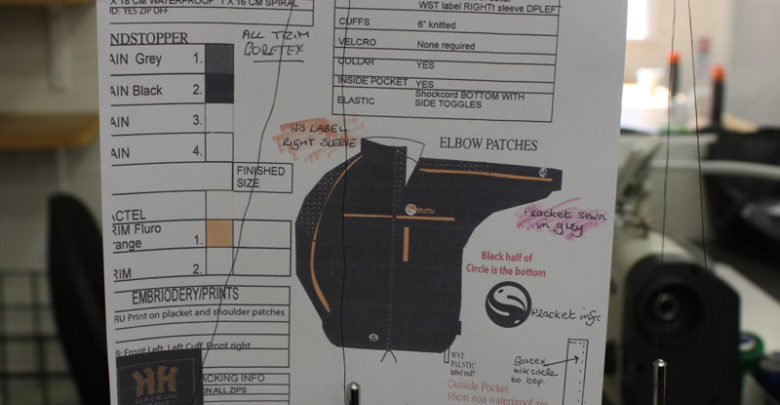 X 18 CM WATERPROOF 1 X 16 CM SPIRAL
ID: YES ZIP OFF
WST label RIGHTt sleeve DPLEFT
CUFFS 6" knitted
VELCRO None required
COLLAR YES
INSIDE POCKET YES
ELASTIC Shockcord BOTTOM WITH
SIDE TOGGLES
NDSTOPPER
ALL TRIM.
GORETEX
AIN Grey 1.
AIN Black 2.
AIN 3.
AIN 4.
FINISHED
SIZE
ACTEL
RIM Fluro
range 1.
RIM 2.
WS LABEL
RIGHT SLEEVE
ELBOW PATCHES
Placket sewn
in grey
Black half of
Circle is the bottom
Placket
EMBRIODERY/PRINTS
RU Print on placket and shoulder patches
B: Front Left, Left Cuff, Front right
HH
HALKON
ACKING INFO
ON ALL ZIPS
WST
PALSTIC
label red?
Outside Pocket
16cm non waterproof zip
Gortex
blk circle
to top.